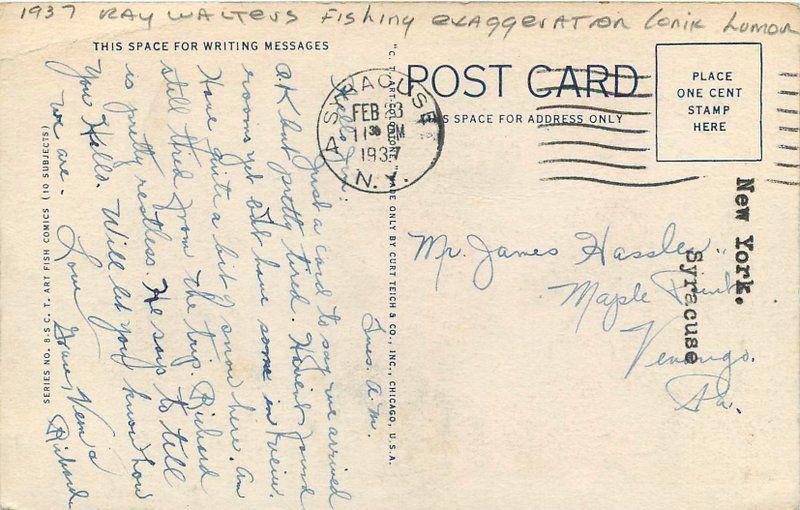 1937 RAY WALTERS Fishing exaggeration Comik Humor
THIS SPACE FOR WRITING MESSAGES
POST CARD
THIS SPACE FOR ADDRESS ONLY
PLACE
ONE CENT
STAMP
HERE
SYRACUSE
FEB 23
11 30 AM
1937
N.Y.
Tues. a.m.
Hello Jim:
Just a card to say we arrived
O.K. but pretty tired. Haven't found
rooms yet but have some in view.
Have quite a bit of snow here. Am
still tired from the trip. Richard
is pretty restless. He says to tell
you Hello. Will let you know how
we are. Love Fran, Vern &
Richard
Mr. James Hassler
Maple
Venango.
Pa.
New York.
Syracuse
SERIES NO. 8-S C. T. ART FISH COMICS (10 SUBJECTS)
"C. T. ART-COLORTONE" MADE ONLY BY CURT TEICH & CO., INC., CHICAGO, U.S.A.